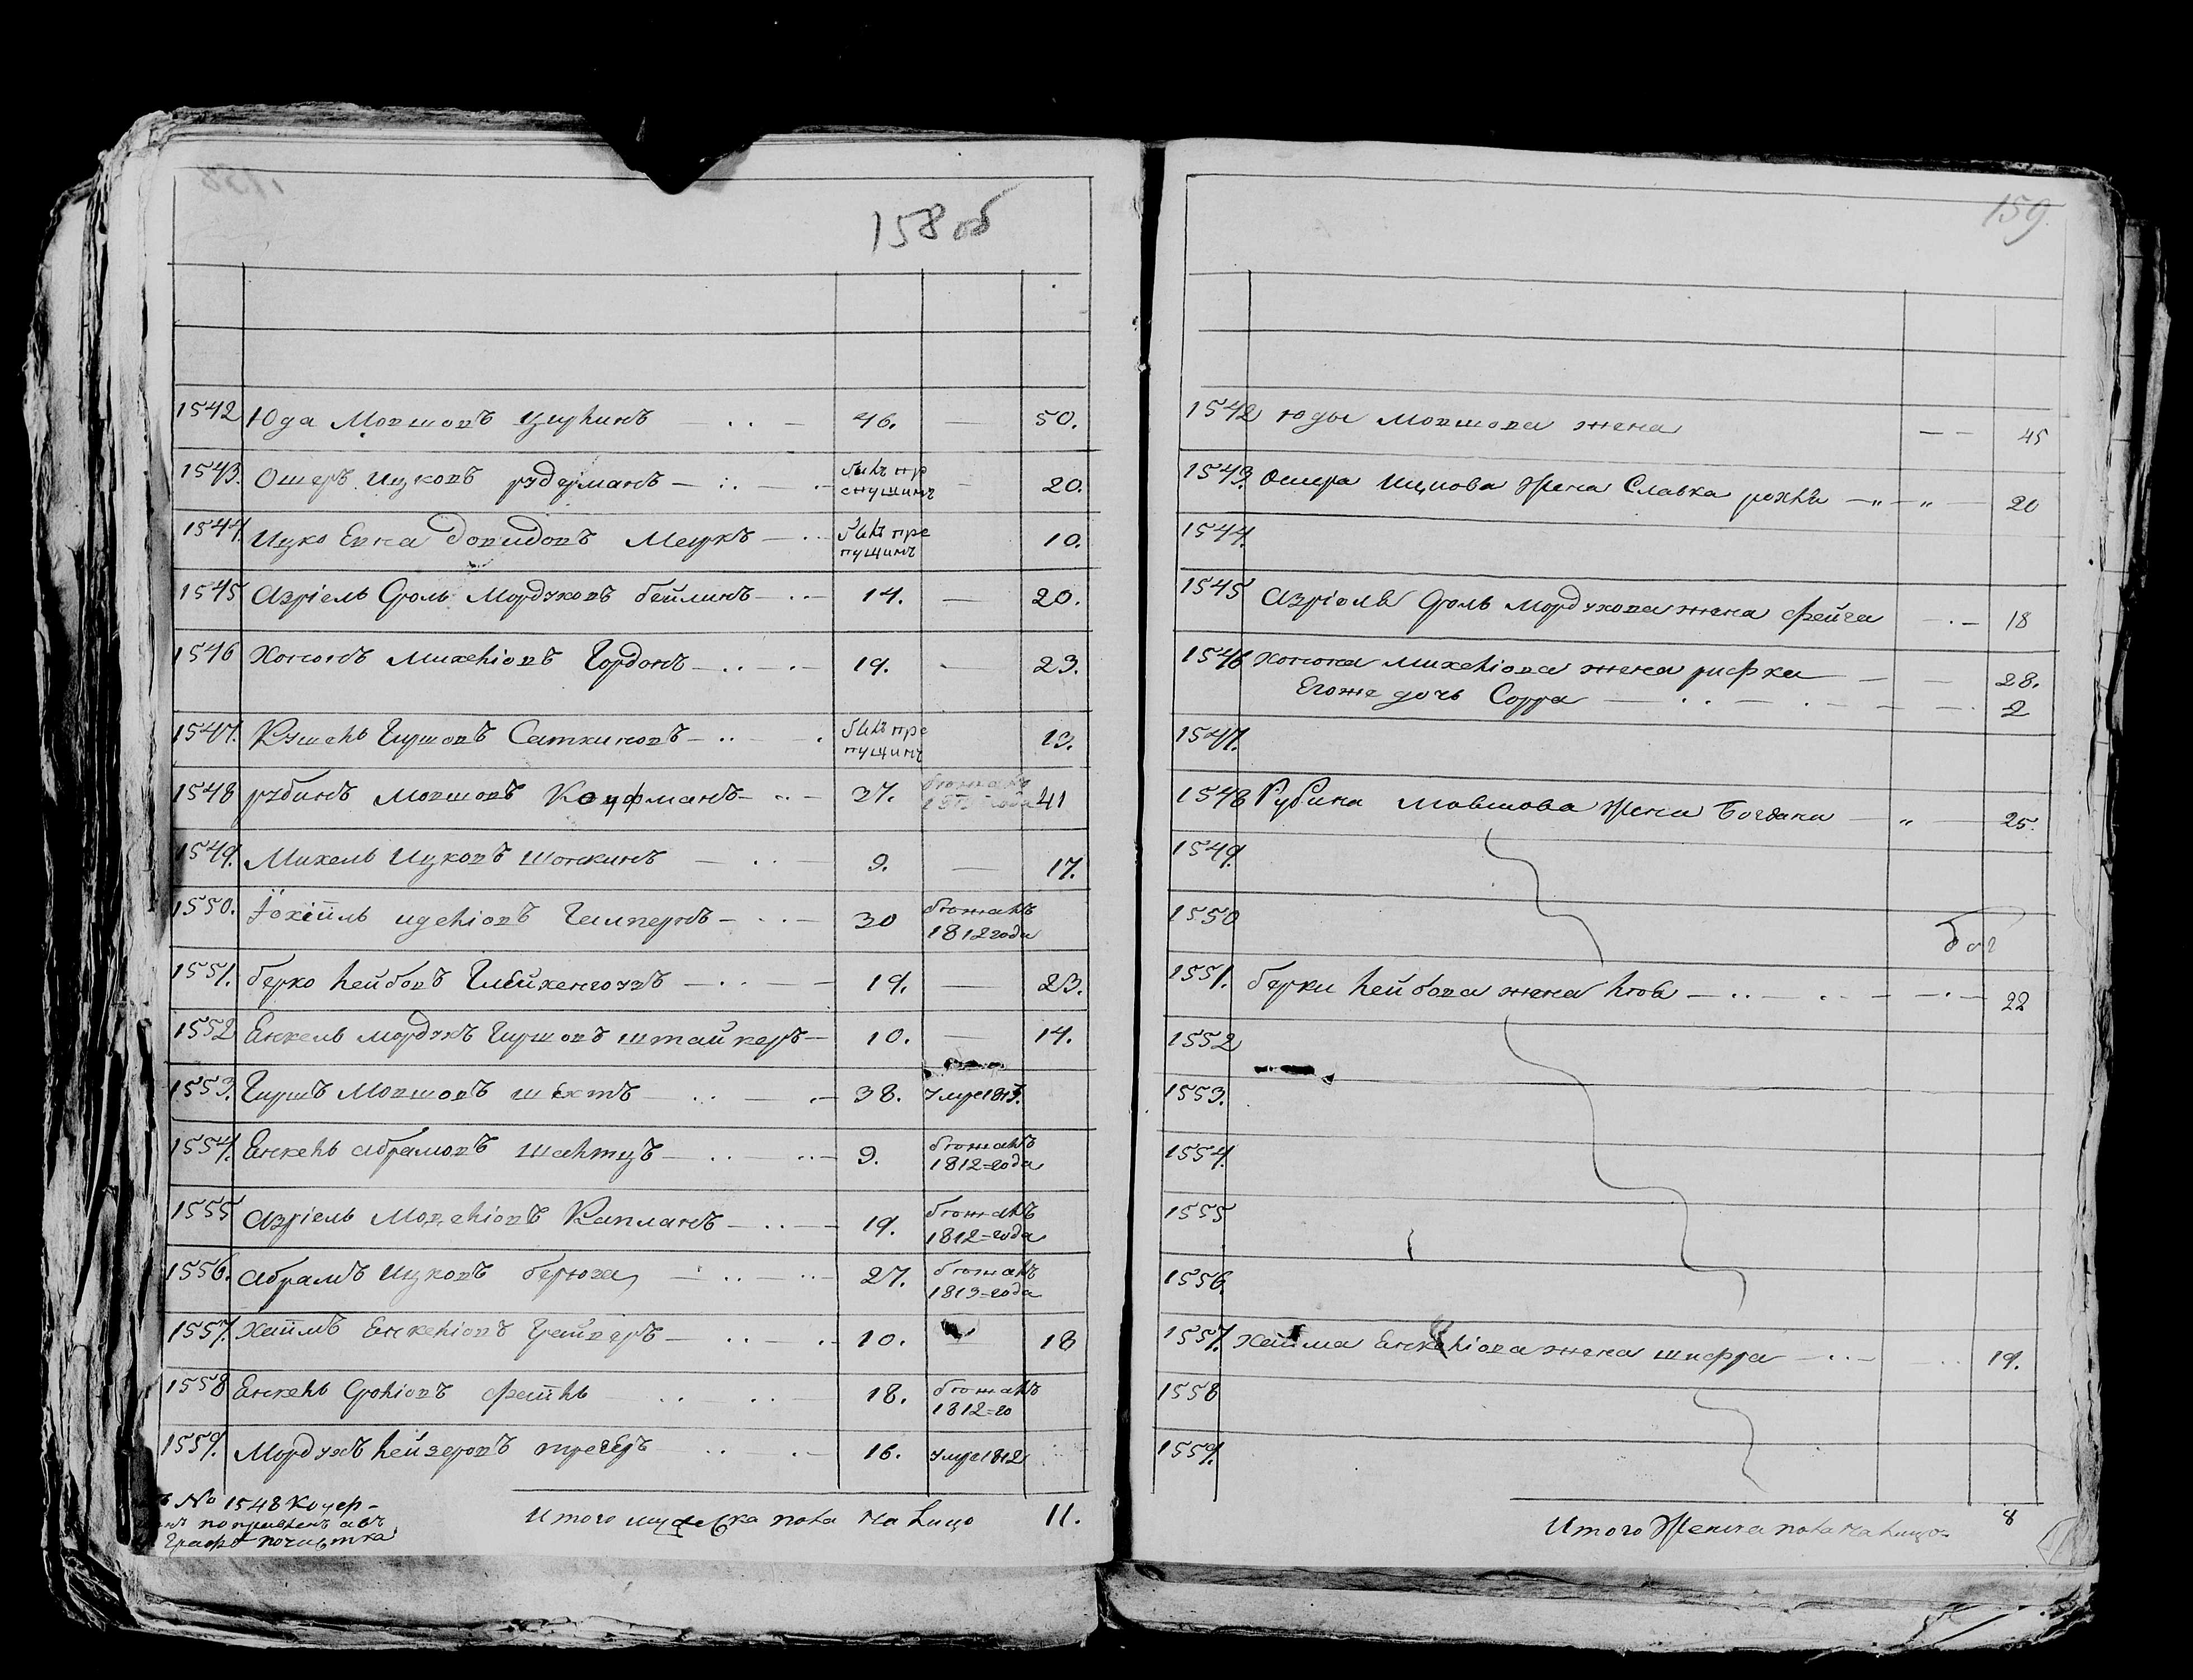 158 об
1542 Юда Мовшовъ Цирлинъ 46. — 50.
1543. Ошеръ Ицковъ рудерманъ — 20.
1544. Ицко Евна Довидовъ Меиръ — былъ пропущинъ 10.
1545 Азріель Сроль Мордуховъ бейлинъ — 14. — 20.
1546 Хононъ Михеліовъ Гордонъ — 19. — 23.
1547. Кушель Гиршовъ Саткиновъ — былъ пропущинъ 13.
1548 рубинъ Мовшовъ Кауфманъ — 37. 41
1549. Михель Ицковъ Шонкинъ — 9. — 17.
1550. Іохіиль иделіовъ Гальпернъ — 30 бѣжалъ 1812 года
1551. берко лейбовъ — 19. — 23.
1552 Енкель мордухъ Гиршовъ штайнеръ — 10. — 14.
1553. Гиршъ Мовшовъ шехтъ — 38. умре 1813.
1554. Енкель абрамовъ шальтцъ — 9. бѣжалъ 1812=года
1555 Азріель Мовшеліовъ Капланъ — 19. бѣжалъ 1812=года
1556. Абрамъ Ицковъ берюга — 27. бѣжалъ 1813=года
1557. Хаимъ Енкеліовъ — 10. — 18
1558 Енкель Сроліовъ — 18. бѣжалъ 1812=го
1559. Мордухъ лейзеровъ трегеръ 16. умре 1812
№ 1548 Коуер-
поправленъ а въ
Графѣ почистка
Итого мужеска пола на лицо 11.
159.
1542 юды Мовшова жена — 45
1543. Ошера Ицкова Жена Славка рохля — 20
1544.
1545 Азріоля Сроль Мордухова жена фейга — 18
1546 Хонона Михеліова жена рифка — 28.
Егоже дочь Сорра — 2
1547.
1548 Рубина Мовшова Жена Богдана — 25.
1549.
1550
1551. берки лейбова жена — 22
1552
1553.
1554.
1555
1556.
1557. Хаима Енкеліова жена шифра — 19.
1558
1559.
Итого Женска пола на лицо 8